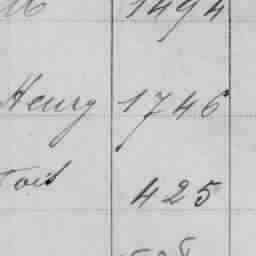 1494
Henry 1746
Toit 425